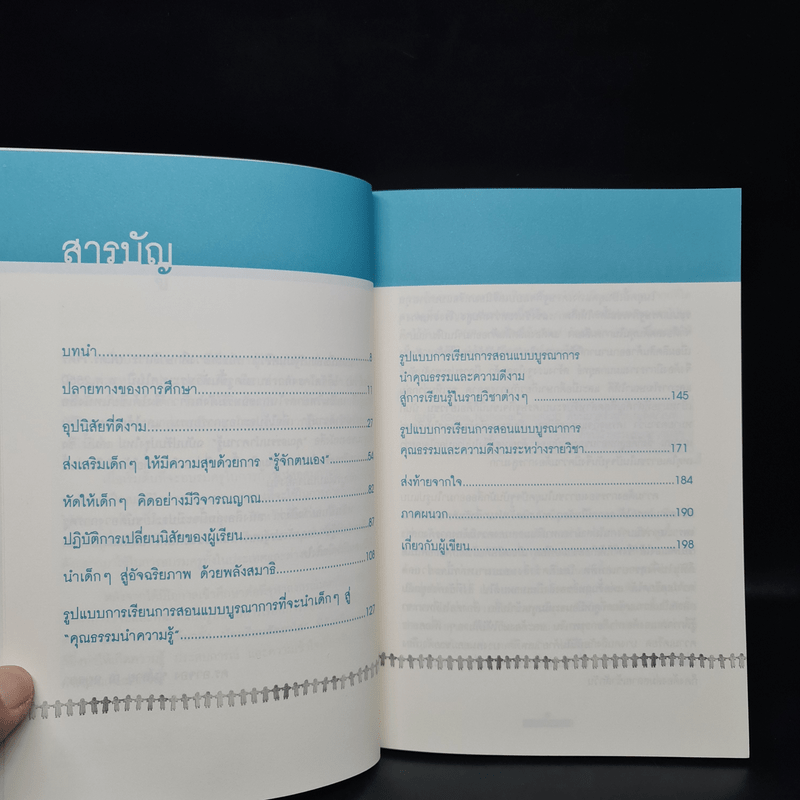 สารบัญ
บทนำ........................................................8
ปลายทางของการศึกษา....................................11
อุปนิสัยที่ดีงาม.............................................27
ส่งเสริมเด็กๆ ให้มีความสุขด้วยการ "รู้จักตนเอง"........54
หัดให้เด็กๆ คิดอย่างมีวิจารณญาณ.........................82
ปฏิบัติการเปลี่ยนนิสัยของผู้เรียน...........................87
นำเด็กๆ สู่อัจฉริยภาพ ด้วยพลังสมาธิ....................108
รูปแบบการเรียนการสอนแบบบูรณาการที่จะนำเด็กๆ สู่
"คุณธรรมนำความรู้"........................................127
รูปแบบการเรียนการสอนแบบบูรณาการ
นำคุณธรรมและความดีงาม
สู่การเรียนรู้ในรายวิชาต่างๆ ..............................145
รูปแบบการเรียนการสอนแบบบูรณาการ
คุณธรรมและความดีงามระหว่างรายวิชา..................171
ส่งท้ายจากใจ...............................................184
ภาคผนวก..................................................190
เกี่ยวกับผู้เขียน............................................198